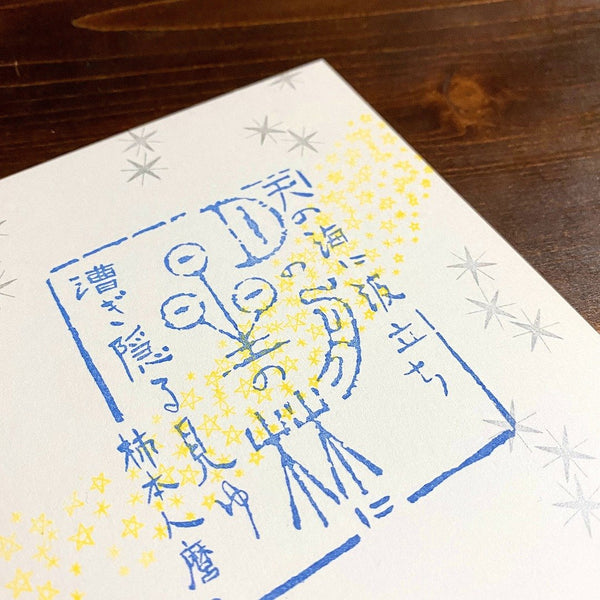 天の海に波立ち
月の舟
星の林に
漕ぎ隠る見ゆ
柿本人麿